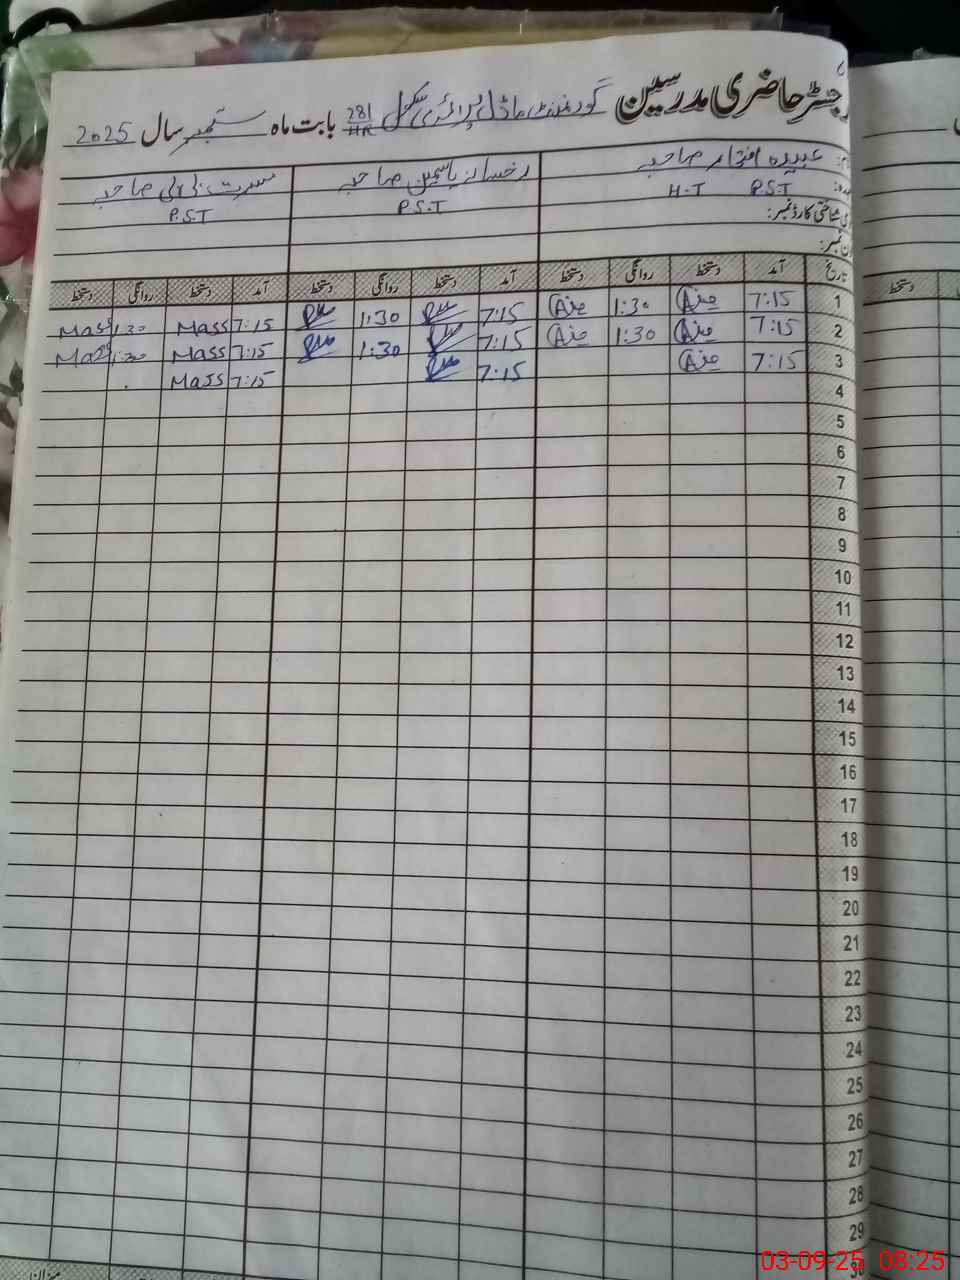 رجسٹر حاضری مدرسین گورنمنٹ ماڈل پرائمری سکول 281/HR بابت ماہ ستمبر سال 2025
عبیدہ افتخار صاحبہ رخسانہ یاسمین صاحبہ مسرت بی بی صاحبہ
H.T P.S.T P.S.T P.S.T
شناختی کارڈ نمبر:
تاریخ آمد دستخط روانگی دستخط آمد دستخط روانگی دستخط آمد دستخط روانگی دستخط دستخط
1 7:15 1:30 7:15 1:30 7:15 Mass 1:30 Mass
2 7:15 1:30 7:15 1:30 7:15 Mass 1:30 Mass
3 7:15 7:15 7:15 Mass
4
5
6
7
8
9
10
11
12
13
14
15
16
17
18
19
20
21
22
23
24
25
26
27
28
29
30
03-09-25 08:25